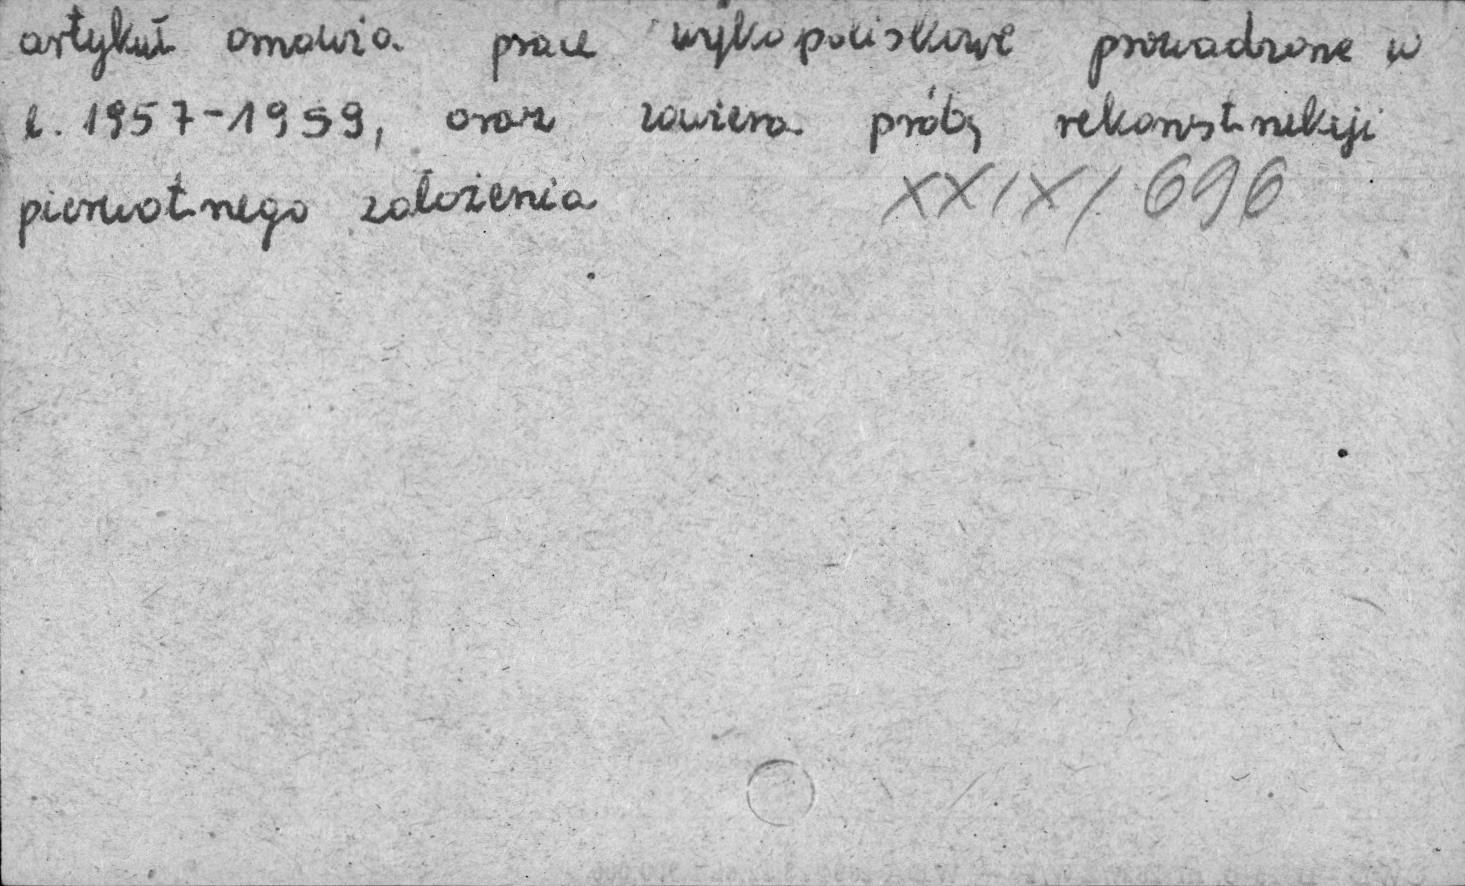 artykuł omawia prace wykopaliskowe prowadzone w
l. 1957-1959, oraz zawiera próbę rekonstrukcji
pierwotnego założenia XXIX/696